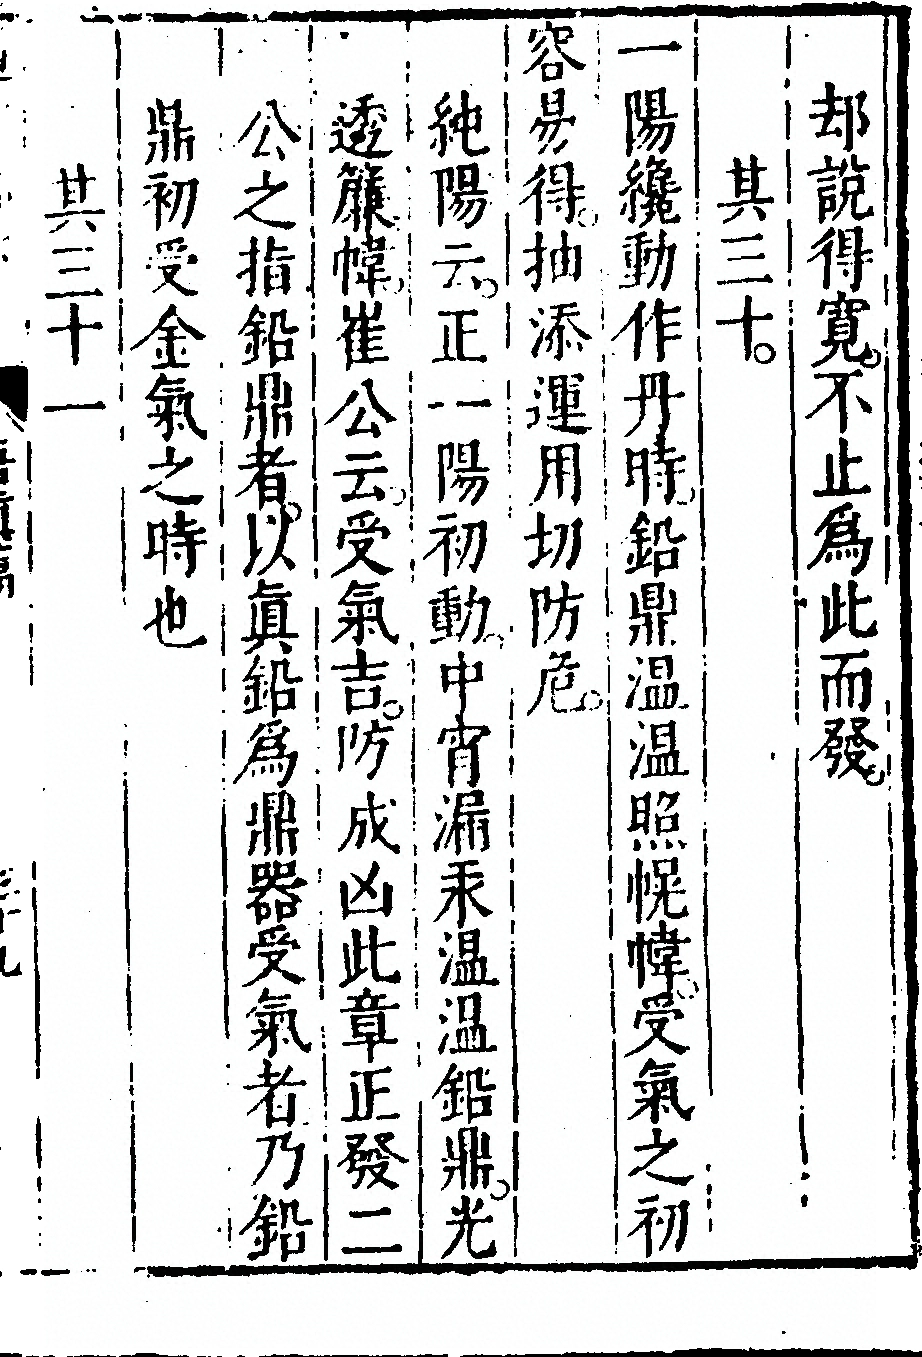 却說得寬。不止爲此而發。
其三十。
一陽纔動作丹時。鉛鼎溫溫照幌幃。受氣之初
容易得。抽添運用切防危。
純陽云。正一陽初動。中宵漏汞溫溫鉛鼎。光
透簾幃。崔公云。受氣吉。防成凶此章正發二
公之指鉛鼎者。以眞鉛爲鼎器受氣者乃鉛
鼎初受金氣之時也
其三十一